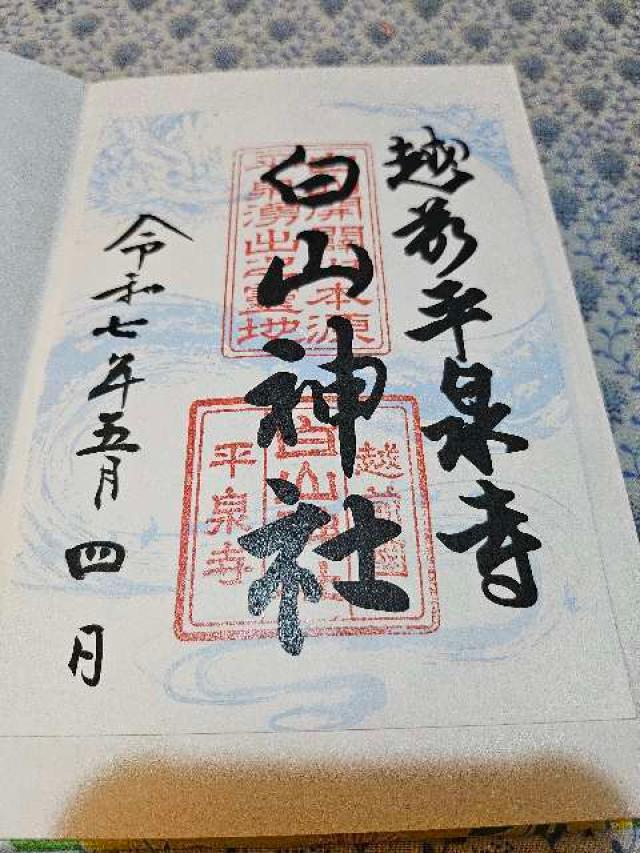 越前平泉寺
白山神社
令和七年五月四月
平泉涌出之霊地
越前國
平泉寺